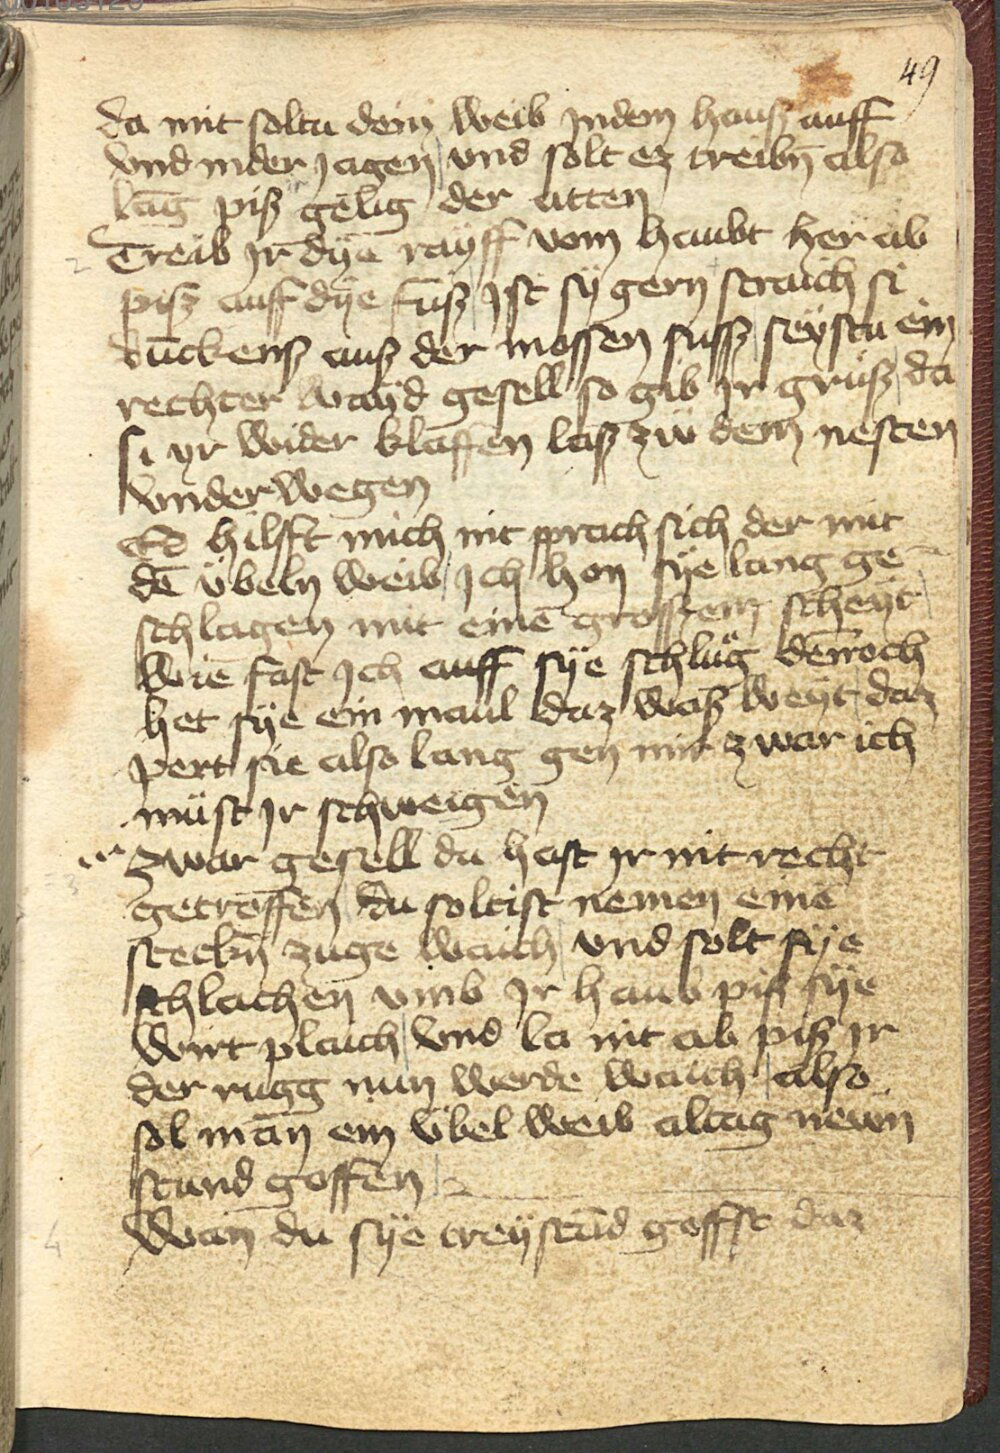 49
da mit soltu dein weib Jndem hauß auff
vnd nider jagen vnd solt ez treibn̄ also
lāg piß gelig der atten
Treib Jr dye rayff vom haubt her ab
piß auf dye fuß Jst sy gern strauch si
duckenß auß der massen suß seystu ein
rechter wayd gesell so gib Jr gruß da
si yr wider klaffen laß zw dem nesten
vnder wegen
Ez hilfft mich nit sprach sich der mit
dē übeln weib Ich hon sye lang ge
schlagen mit einē grossem scheyt
wie fast Ich auff sye schlůg dēnoch
het sye ein maul daz waß weyt daz
pert sie also lang gen mir zwar ich
müst Jr schweigen
Zwar gesell du hast Jr nit recht
getroffen du soltist nemen einē
steckn̄ zuge waich vnd solt sye
schlachen vmb Jr haub piß sye
wirt plaich vnd la nit ab piß Jr
der rugg nun werde waich also
sol man ein übel weib altag newn
stund goffen
Wan du sye treystūd goffst daz
4